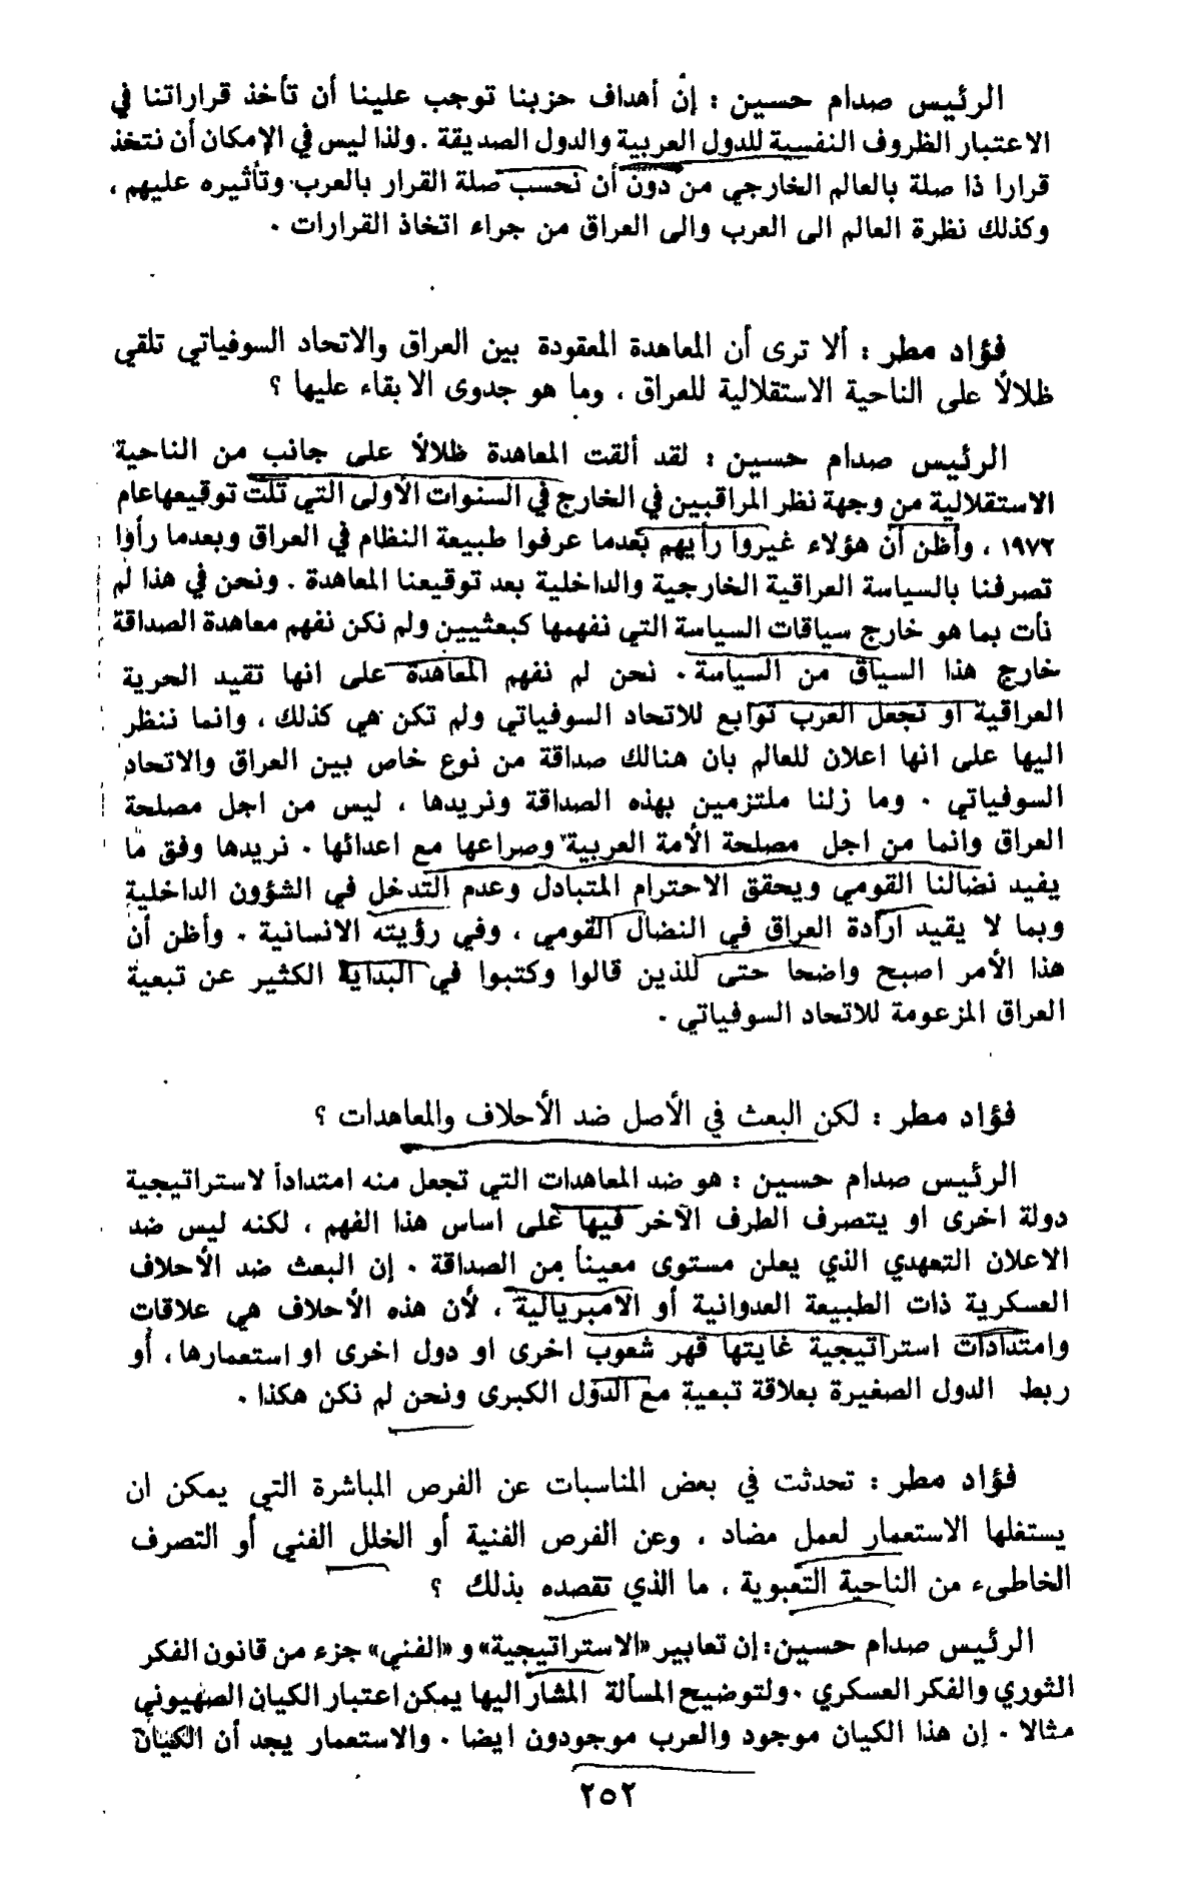 الرئيس صدام حسين : إن أهداف حزبنا توجب علينا أن تأخذ قراراتنا في
الاعتبار الظروف النفسية للدول العربية والدول الصديقة . ولذا ليس في الإمكان أن نتخذ
قرارا ذا صلة بالعالم الخارجي من دون أن نحسب صلة القرار بالعرب وتأثيره عليهم ،
وكذلك نظرة العالم الى العرب والى العراق من جراء اتخاذ القرارات .
فؤاد مطر : ألا ترى أن المعاهدة المعقودة بين العراق والاتحاد السوفياتي تلقي
ظلالاً على الناحية الاستقلالية للعراق ، وما هو جدوى الابقاء عليها ؟
الرئيس صدام حسين : لقد ألقت المعاهدة ظلالاً على جانب من الناحية
الاستقلالية من وجهة نظر المراقبين في الخارج في السنوات الأولى التي تلت توقيعها عام
١٩٧٢ ، وأظن أن هؤلاء غيروا رأيهم بعدما عرفوا طبيعة النظام في العراق وبعدما رأوا
تصرفنا بالسياسة العراقية الخارجية والداخلية بعد توقيعنا المعاهدة . ونحن في هذا لم
نأت بما هو خارج سياقات السياسة التي نفهمها كبعثيين ولم نكن نفهم معاهدة الصداقة
خارج هذا السياق من السياسة . نحن لم نفهم المعاهدة على انها تقيد الحرية
العراقية او تجعل العرب توابع للاتحاد السوفياتي ولم تكن هي كذلك ، وانما ننظر
اليها على انها اعلان للعالم بان هنالك صداقة من نوع خاص بين العراق والاتحاد
السوفياتي . وما زلنا ملتزمين بهذه الصداقة ونريدها ، ليس من اجل مصلحة
العراق وانما من اجل مصلحة الأمة العربية وصراعها مع اعدائها . نريدها وفق ما
يفيد نضالنا القومي ويحقق الاحترام المتبادل وعدم التدخل في الشؤون الداخلية
وبما لا يقيد ارادة العراق في النضال القومي ، وفي رؤيته الانسانية . وأظن أن
هذا الأمر اصبح واضحا حتى للذين قالوا وكتبوا في البداية الكثير عن تبعية
العراق المزعومة للاتحاد السوفياتي .
فؤاد مطر : لكن البعث في الأصل ضد الأحلاف والمعاهدات ؟
الرئيس صدام حسين : هو ضد المعاهدات التي تجعل منه امتداداً لاستراتيجية
دولة اخرى او يتصرف الطرف الآخر فيها على اساس هذا الفهم ، لكنه ليس ضد
الاعلان التعهدي الذي يعلن مستوى معيناً من الصداقة . إن البعث ضد الأحلاف
العسكرية ذات الطبيعة العدوانية أو الامبريالية ، لأن هذه الأحلاف هي علاقات
وامتدادات استراتيجية غايتها قهر شعوب اخرى او دول اخرى او استعمارها ، أو
ربط الدول الصغيرة بعلاقة تبعية مع الدول الكبرى ونحن لم نكن هكذا .
فؤاد مطر : تحدثت في بعض المناسبات عن الفرص المباشرة التي يمكن ان
يستغلها الاستعمار لعمل مضاد ، وعن الفرص الفنية أو الخلل الفني أو التصرف
الخاطىء من الناحية التعبوية ، ما الذي تقصده بذلك ؟
الرئيس صدام حسين : إن تعابير «الاستراتيجية» و «الفني» جزء من قانون الفكر
الثوري والفكر العسكري . ولتوضيح المسألة المشار اليها يمكن اعتبار الكيان الصهيوني
مثالا . إن هذا الكيان موجود والعرب موجودون ايضا . والاستعمار يجد أن الكيان
٢٥٢